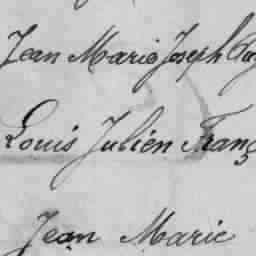 Jean Marie Joseph
Louis Julien Franç
Jean Marie